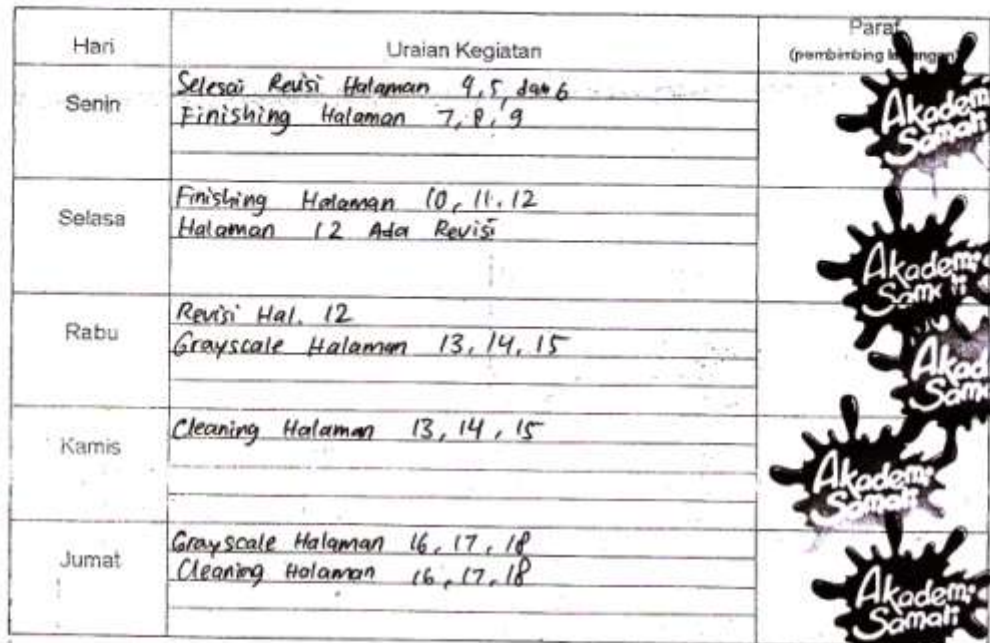 Hari
Uraian Kegiatan
Paraf
(pembimbing lapangan)
Senin
Selesai Revisi Halaman 4,5, dan 6
Finishing Halaman 7, 8, 9
Akademi
Samali
Selasa
Finishing Halaman 10, 11, 12
Halaman 12 Ada Revisi
Akademi
Samali
Rabu
Revisi Hal. 12
Grayscale Halaman 13, 14, 15
Akad
Sama
Kamis
Cleaning Halaman 13, 14, 15
Akademi
Samali
Jumat
Grayscale Halaman 16, 17, 18
Cleaning Halaman 16, 17, 18
Akademi
Samali